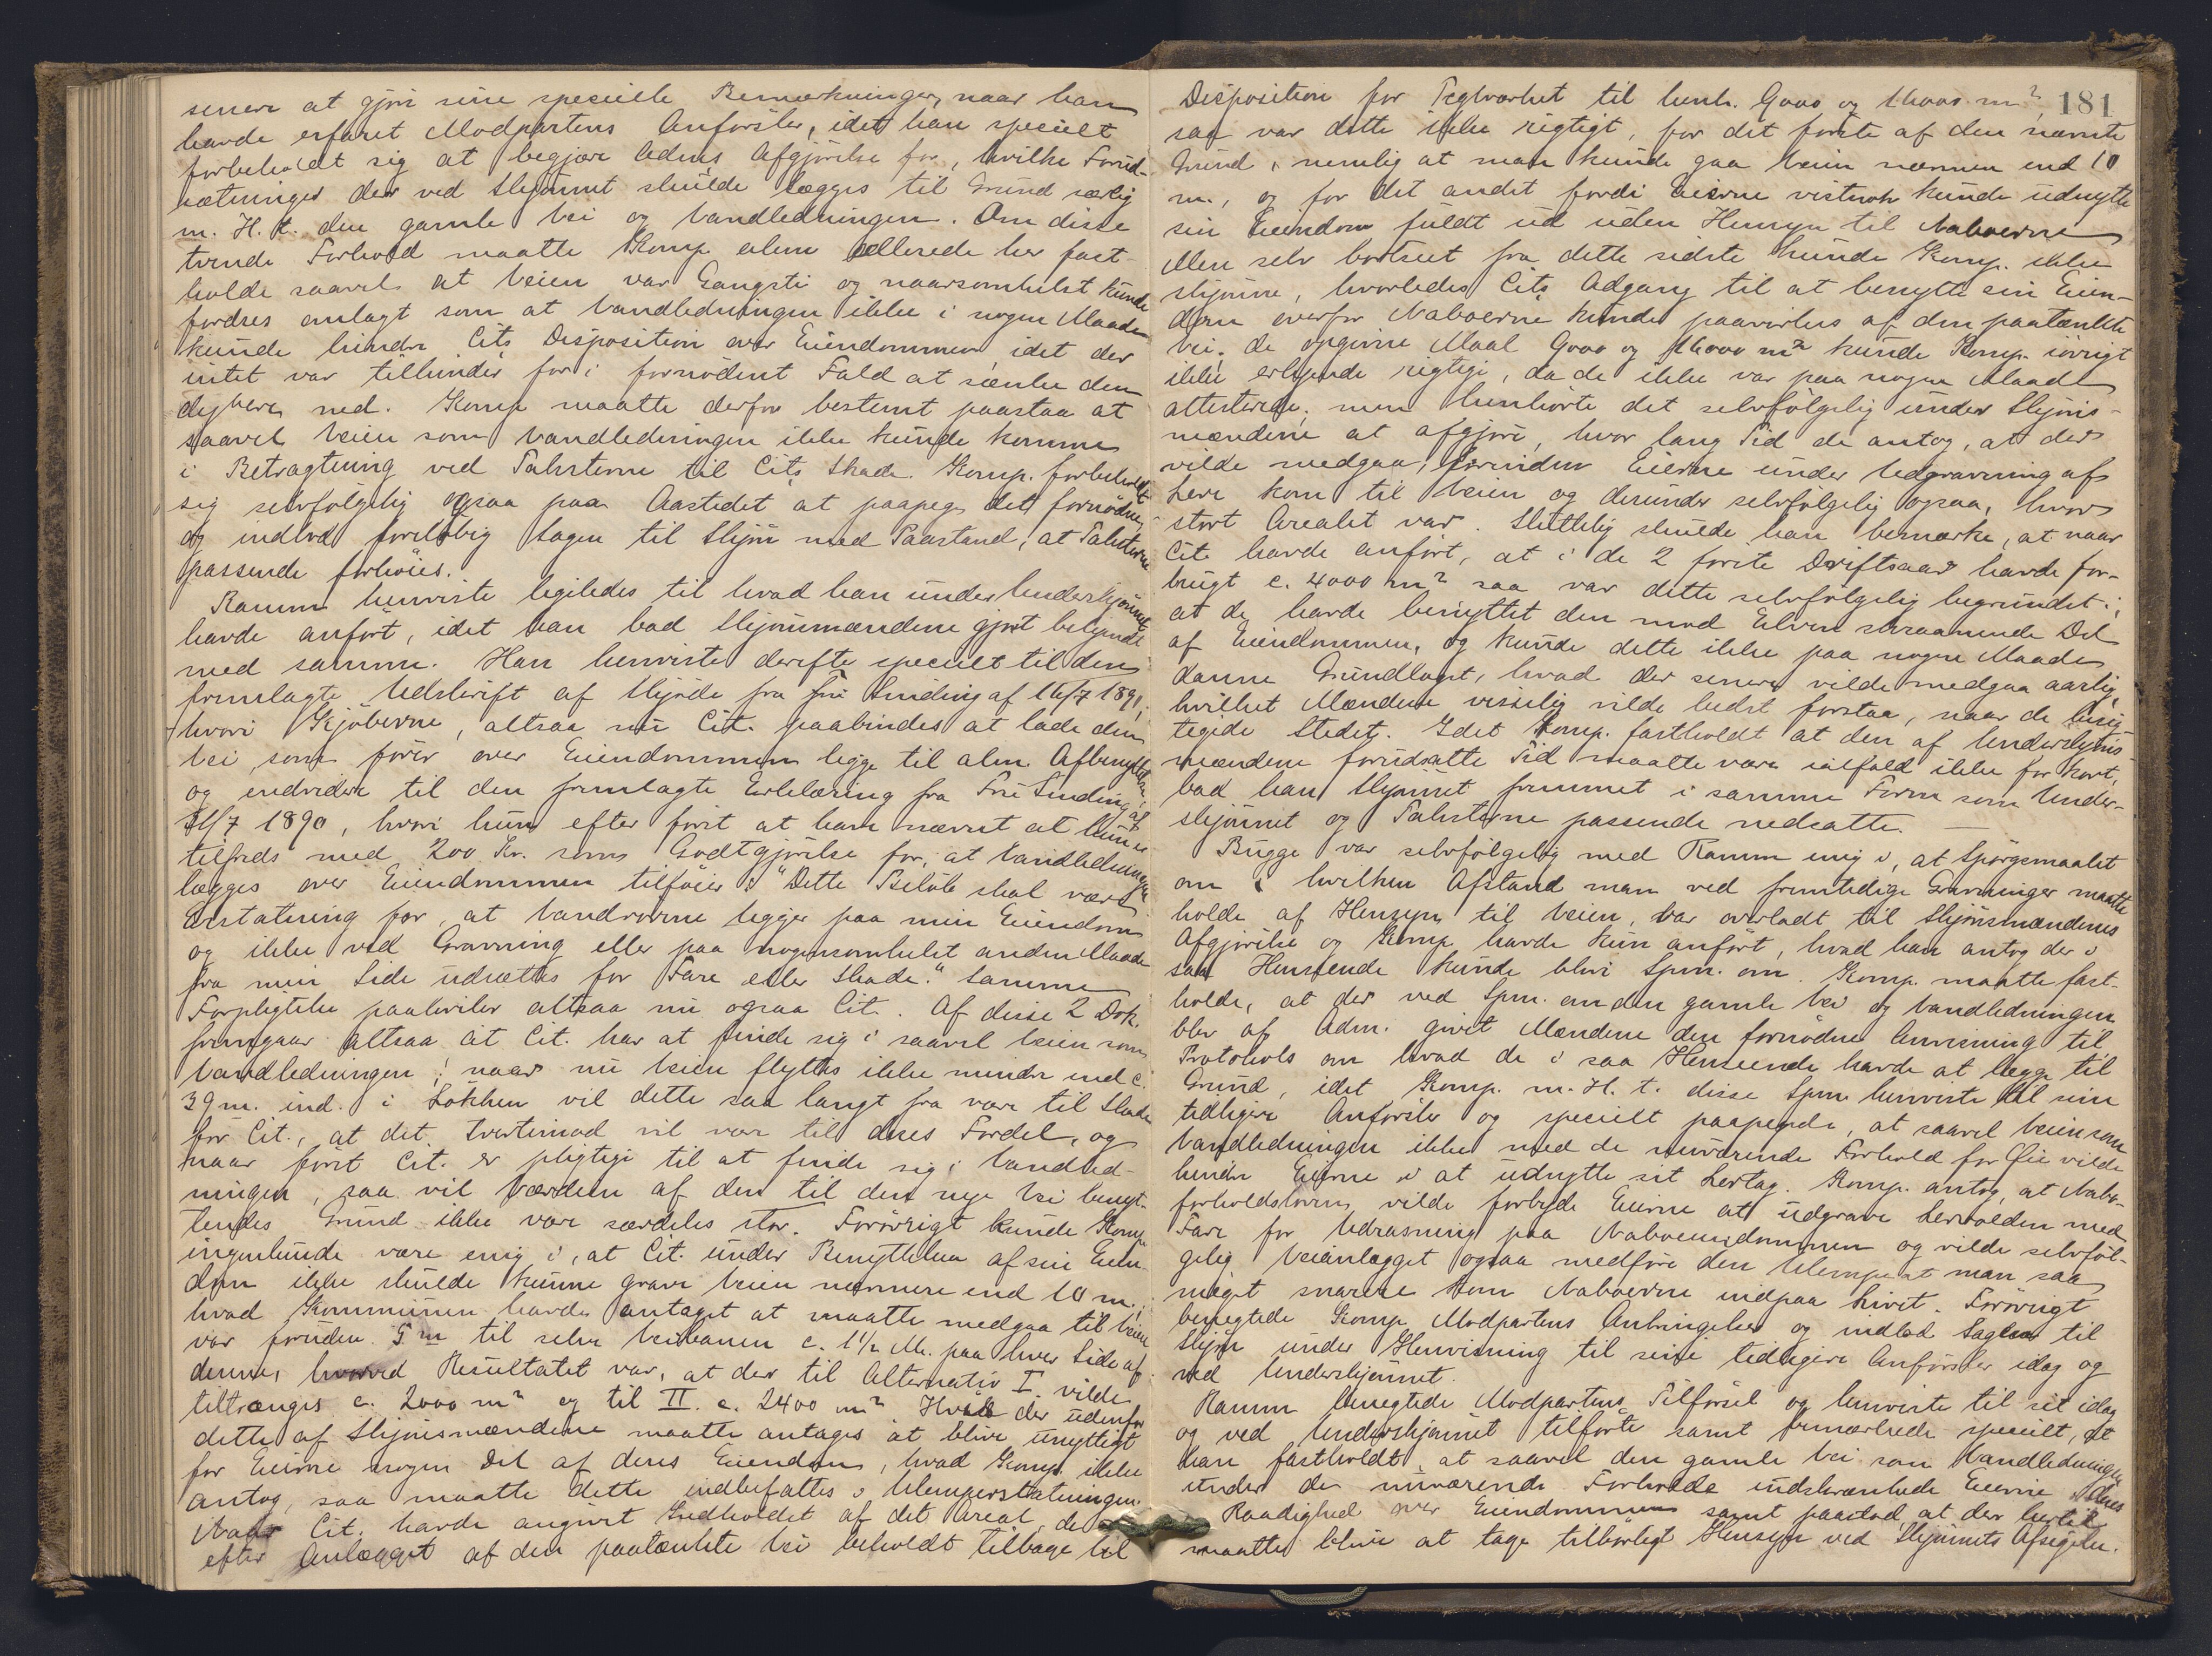 senere at gjöre sine specielle Bemærkninger, naar han
havde erfaret Modpartens Anförsler, idet han specielt
forbeholdt sig at begjære Rettens Afgjörelse for, hvilke Forud-
sætninger der ved Skjönnet skulde lægges til Grund særlig
m. H. t. den gamle Vei og Vandledningen. Om disse
tvende Forhold maatte Komp alene allerede her fast-
holde saavel at Veien var Gangsti og naarsomhelst kunde
fordres omlagt som at Vandledningen ikke i nogen Maade
kunde hindre Cits Disposition over Eiendommen, idet der
intet var tilhinder for i fornödent Fald at sænke den
dybere ned. Komp maatte derfor bestemt paastaa at
saavel Veien som Vandledningen ikke kunde komme
i Betragtning ved Taksterne til Cits Skade. Komp. forbeholdt
sig selvfölgelig ogsaa paa Aastedet at paapege det fornödne,
og indlod foreløbig Sagen til Skjön med Paastand, at Taksterne
passende forhöies.
Ramm henviste ligeledes til hvad han under Underskjönnet
havde anfört, idet han bad Skjönsmændene gjort bekjendt
med samme. Han henviste derefter specielt til den
fremlagte Udskrift af Skjöde fra Fru Sinding af 16/7 1891,
hvori Kjöberne, altsaa nu Cit. paabindes at lade den
Vei, som förer over Eiendommen ligge til alm. Afbenyttelse,
og endvidere til den fremlagte Erklæring fra Fru Sinding af
11/7 1890, hvori hun efter först at have nævnt at hun er
tilfreds med 200 Kr. som Godtgjörelse for, at Vandledningen
lægges over Eiendommen tilföier: "Dette Belöb skal være
Erstatning for, at Vandrörene ligger paa min Eiendom
og ikke ved Gravning eller paa nogensomhelst anden Maade
fra min Side udsættes for Fare eller Skade." Samme
Forpligtelse paahviler altsaa nu ogsaa Cit. Af disse 2 Dok.
fremgaar altsaa at Cit. har at finde sig i saavel Veien som
Vandledningen; naar nu Veien flyttes ikke mindre end c.
39 m. ind i Lökken vil dette saa langt fra være til Skade
for Cit., at det tvertimod vil være til deres Fordel, og
naar först Cit. er pligtige til at finde sig i Vandled-
ningen, saa vil Værdien af den til den nye Vei benyt-
tendes Grund ikke være særdeles stor. Forövrigt kunde Komp
ingenlunde være enig i, at Cit. under Benyttelsen af sin Eien-
dom ikke skulde kunne grave Veien nærmere end 10 m.;
hvad Kommunen havde antaget at maatte medgaa til Veien
var foruden 5 m til selve Veibanen c. 1 1/2 M. paa hver Side af
denne, hvorved Resultatet var, at der til Alternativ I. vilde
tiltrænges c. 2000 m² og til II. c. 2400 m². Hvis der udenfor
dette af Skjönsmændene maatte antages at blive unyttigt
for Eierne nogen Del af deres Eiendom, hvad Komp. ikke
antog, saa maatte dette indbefattes i Ulempeerstatningen.
Naar Cit. havde angivet Indholdet af det Areal, de
efter Anlægget af den paatænkte Vei beholdt tilbage til
181
Disposition for Teglværket til henh. 9000 og 16000 m²,
saa var dette ikke rigtigt, for det förste af den nævnte
Grund, nemlig at man kunde gaa Veien nærmere end 10
m., og for det andet fordi Eierne vistnok kunde udnytte
sin Eiendom fuldt ud uden Hensyn til Naboerne
Men selv bortseet fra dette sidste kunde Komp. ikke
skjönne, hvorledes Cits Adgang til at benytte sin Eien-
dom overfor Naboerne kunde paavirkes af den paatænkte
Vei. de opgivne Maal 9000 og 16000 m² kunde Komp. iövrigt
ikke erkjende rigtige, da de ikke var paa nogen Maade
attesterede; men henhörte det selvfölgelig under Skjöns-
mændene at afgjöre, hvor lang Tid de antog, at der
vilde medgaa, forinden Eierne under Udgravning af
Lere kom til Veien og derunder selvfölgelig ogsaa, hvor
stort Arealet var. Sluttelig skulde han bemærke, at naar
Cit. havde anfört, at i de 2 förste Driftsaar havde for-
brugt c. 4000 m² saa var dette selvfölgelig begrundet i,
at de havde benyttet den mod Elven skraanende Del
af Eiendommen, og kunde dette ikke paa nogen Maade
danne Grundlaget, hvad der senere vilde medgaa aarlig,
hvilket Mændene visselig vilde bedst forstaa, naar de besig-
tigede Stedet. Idet Komp. fastholdt at den af Underskjöns
mændene forudsatte Tid maatte være ialfald ikke for kort,
bad han Skjönnet fremmet i samme Form som Under-
skjönnet og Taksterne passende nedsatte.
Bugge var selvfölgelig med Ramm enig i, at Spörgsmaalet
om i hvilken Afstand man ved fremtidige Gravninger maatte
holde af Hensyn til Veien, var overladt til Skjönsmændenes
Afgjörelse og Komp. havde kun anfört, hvad han antog der i
saa Henseende kunde blive Spm. om. Komp. maatte fast-
holde, at der ved Spm. om den gamle Vei og Vandledningen
blev af Adm. givet Mændene den fornödne Anvisning til
Protokols om hvad de i saa Henseende havde at lægge til
Grund, idet Komp. m. H. t. disse Spm. henviste til sine
tidligere Anförsler og specielt paapegede, at saavel Veien som
Vandledningen ikke med de nuværende Forhold for Öie vilde
hindre Eierne i at udnytte sit Lertag. Komp. antog, at Nabo-
forholdsloven vilde forbyde Eierne at udgrave Lervolden med
Fare for Udrasning paa Naboeiendommen og vilde selvföl-
gelig Veianlægget ogsaa medföre den Ulempe at man saa
meget snarere kom Naboerne indpaa Livet. Forövrigt
benegtede Komp Modpartens Anbringelser og indlod Sagen til
Skjön under Henvisning til sine tidligere Anförsler idag og
ved Underskjönnet.
Ramm benegtede Modpartens Tilförsel og henviste til sit idag
og ved Underskjönnet tilförte samt bemærkede specielt, at
han fastholdt, at saavel den gamle Vei som Vandledningen
under de nuværende Forholde indskrænkede Eierne i deres
Raadighed over Eiendommen samt paastod, at der hertil
maatte blive at tage tilbörligt Hensyn ved Skjönnets Afsigelse.